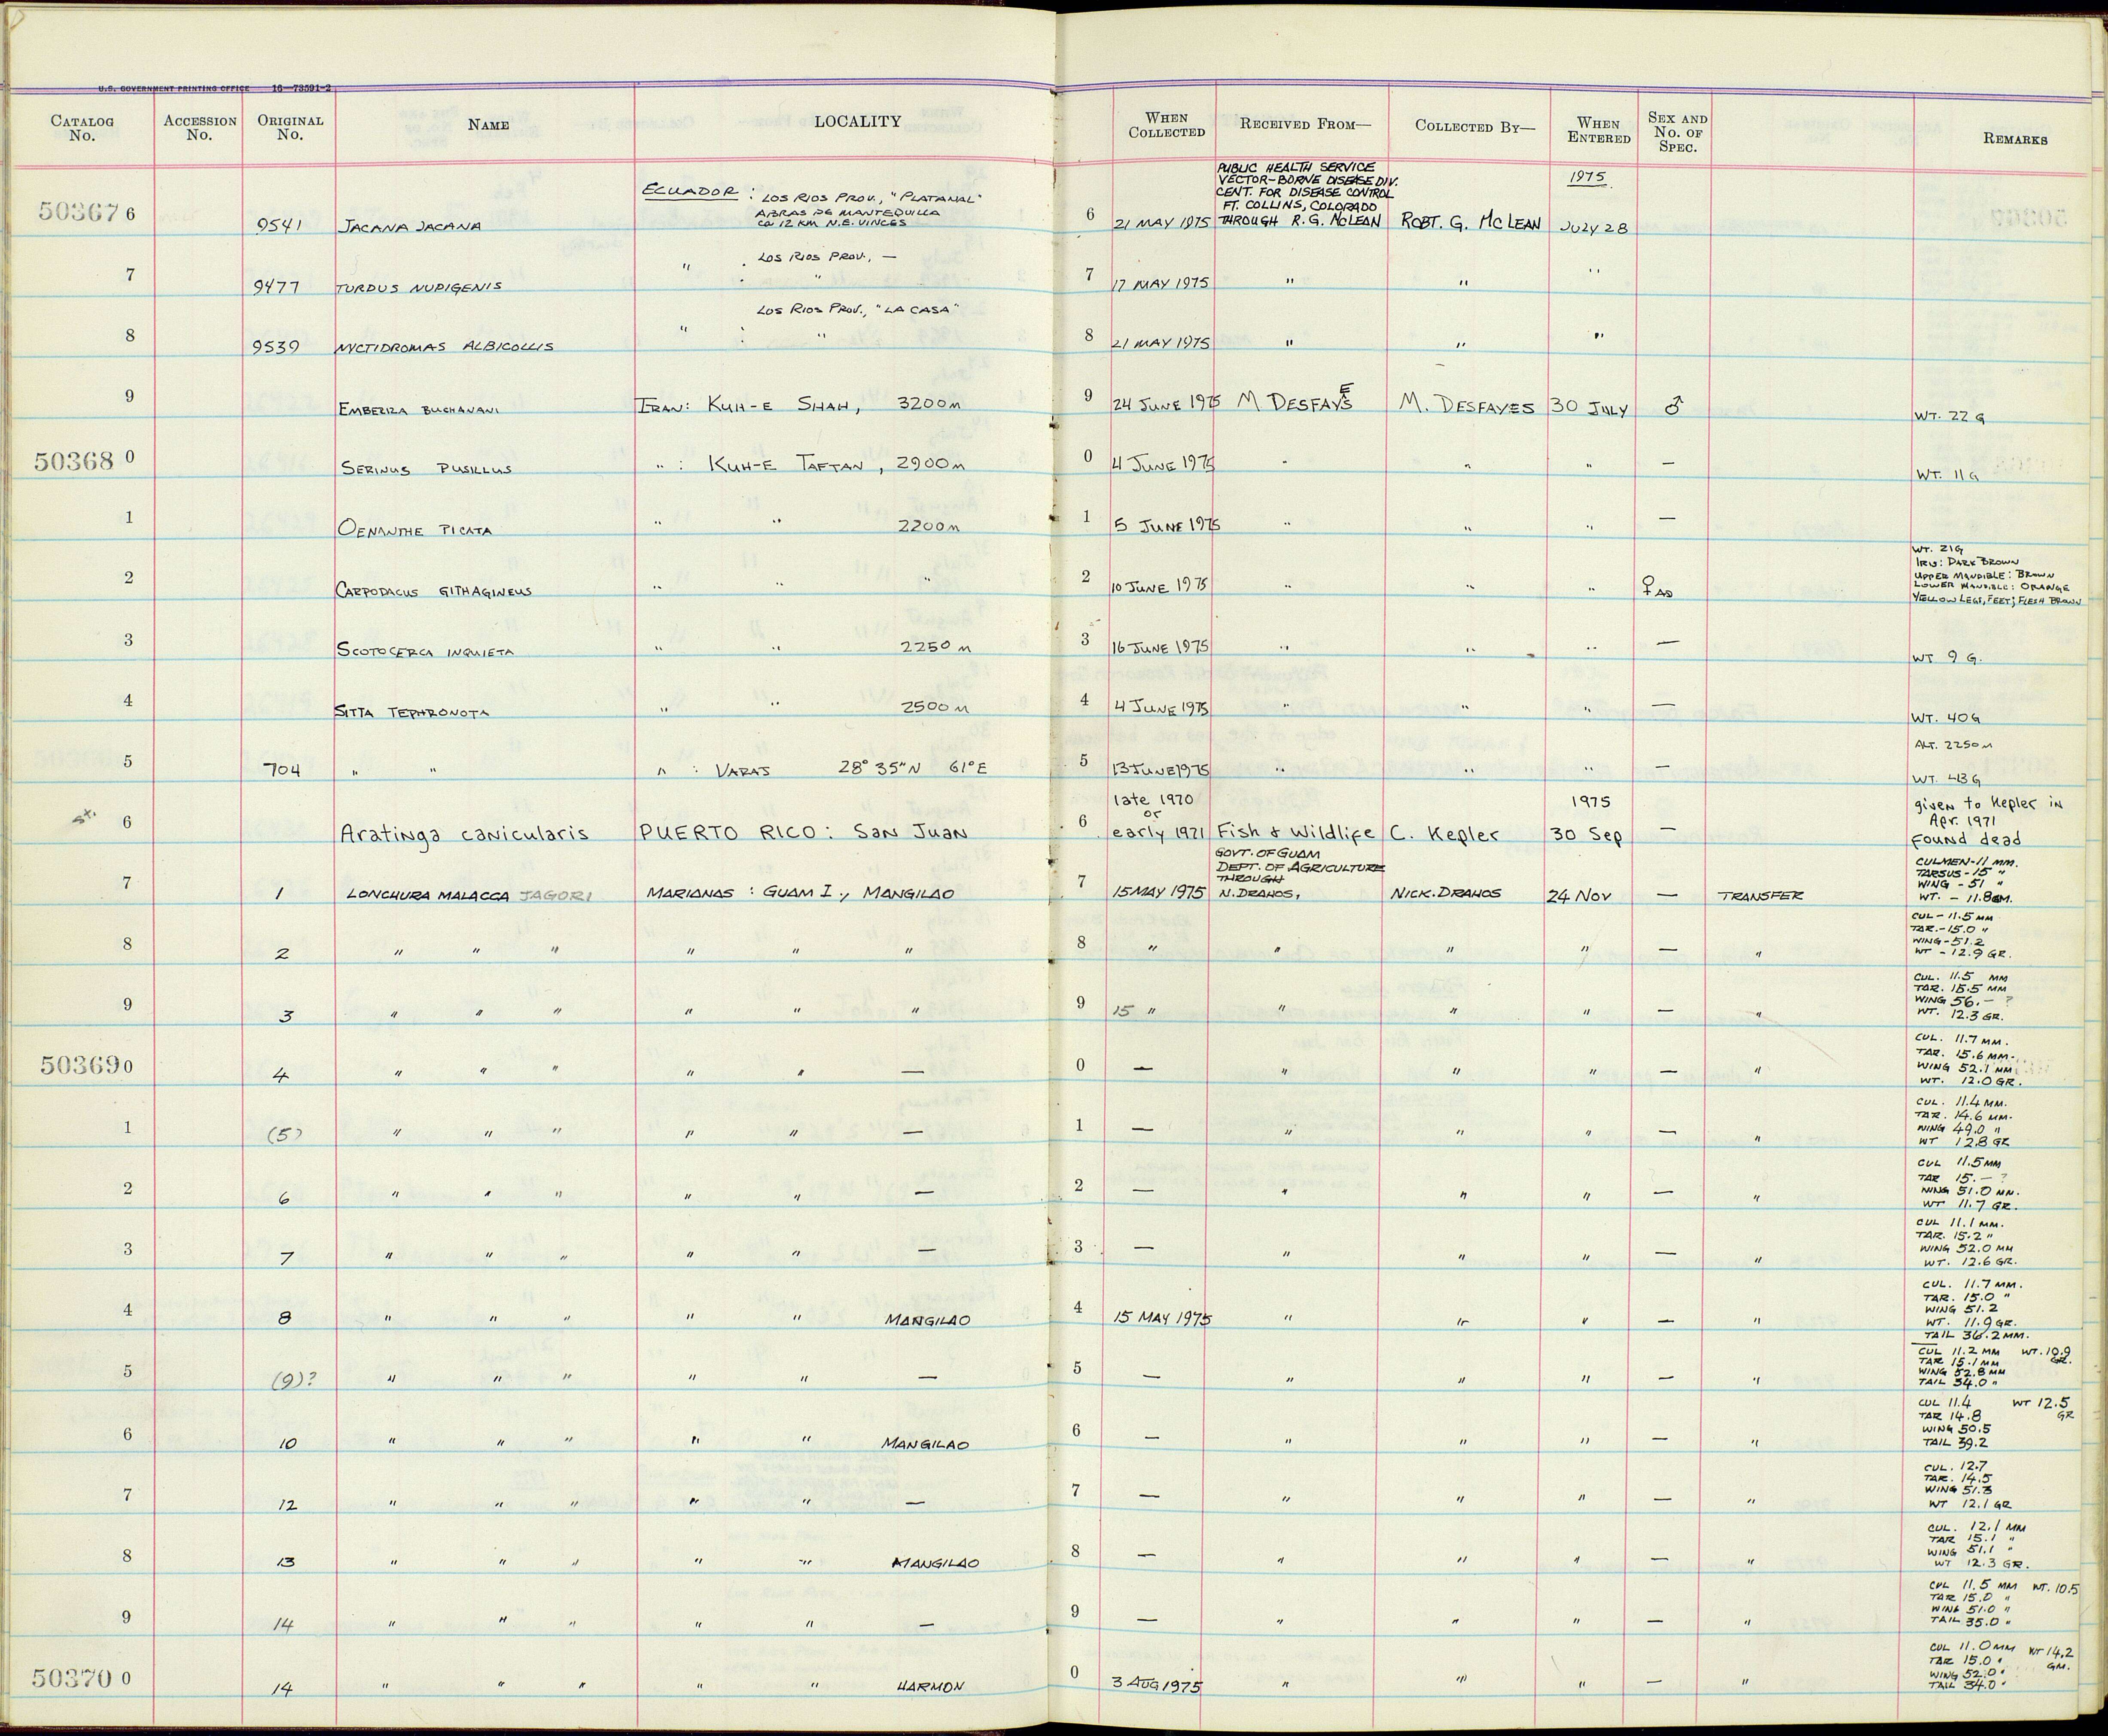 U.S. GOVERNMENT PRINTING OFFICE 16—73591-2
CATALOG No. ACCESSION No. ORIGINAL No. NAME LOCALITY WHEN COLLECTED RECEIVED FROM— COLLECTED BY— WHEN ENTERED SEX AND No. OF SPEC. REMARKS
PUBLIC HEALTH SERVICE
VECTOR-BORNE DISEASE DIV. 1975
CENT. FOR DISEASE CONTROL
ECUADOR : LOS RIOS PROV., "PLATANAL" FT. COLLINS, COLORADO
ABRAS DE MANTEQUILLA
50367 6 9541 JACANA JACANA ca 12 KM N.E. VINCES 6 21 MAY 1975 THROUGH R. G. McLEAN ROBT. G. McLEAN JULY 28
LOS RIOS PROV., —
7 9477 TURDUS NUDIGENIS " : " 7 17 MAY 1975 " " "
LOS RIOS PROV., "LA CASA"
8 9539 NYCTIDROMAS ALBICOLLIS " : " 8 21 MAY 1975 " " "
9 EMBERIZA BUCHANANI IRAN: KUH-E SHAH, 3200M 9 24 JUNE 1975 M DESFAYES M. DESFAYES 30 JULY ♂ WT. 22 G
50368 0 SERINUS PUSILLUS " : KUH-E TAFTAN, 2900M 0 4 JUNE 1975 " " " — WT. 11G
1 OENANTHE PICATA " " 2200M 1 5 JUNE 1975 " " " —
WT. 21G
IRIS: DARK BROWN
UPPER MANDIBLE: BROWN
LOWER MANDIBLE: ORANGE
2 CARPODACUS GITHAGINEUS " " " 2 10 JUNE 1975 " " " ♀ AD YELLOW LEGS, FEET; FLESH BROWN
3 SCOTOCERCA INQUIETA " " 2250 M 3 16 JUNE 1975 " " " — WT 9 G.
4 SITTA TEPHRONOTA " " 2500 M 4 4 JUNE 1975 " " " — WT. 40G
ALT. 2250M
5 704 " " " : VARAJ 28° 35"N 61°E 5 13 JUNE 1975 " " " — WT. 43G
late 1970 1975 given to Kepler in
or Apr. 1971
st. 6 Aratinga canicularis PUERTO RICO: San Juan 6 early 1971 Fish & Wildlife C. Kepler 30 Sep — found dead
GOVT. OF GUAM CULMEN-11 MM.
DEPT. OF AGRICULTURE TARSUS-15 "
THROUGH WING - 51 "
7 1 LONCHURA MALACCA JAGORI MARIANAS : GUAM I., MANGILAO 7 15 MAY 1975 N. DRAHOS, NICK. DRAHOS 24 NOV — TRANSFER WT. - 11.8GM.
CUL - 11.5 MM
TAR.-15.0 "
WING-51.2
8 2 " " " " " " 8 " " " " — " WT - 12.9 GR.
CUL. 11.5 MM
TAR. 15.5 MM
WING 56.- ?
9 3 " " " " " " 9 15 " " " " — " WT. 12.3 GR.
CUL. 11.7 MM.
TAR. 15.6 MM.
WING 52.1 MM
50369 0 4 " " " " " — 0 — " " " — " WT. 12.0 GR.
CUL. 11.4 MM.
TAR. 14.6 MM.
WING 49.0 "
1 (5) " " " " " — 1 — " " " — " WT 12.8 GR
CUL 11.5 MM
TAR 15.- ?
WING 51.0 MM.
2 6 " " " " " — 2 — " " " — " WT 11.7 GR.
CUL 11.1 MM.
TAR. 15.2 "
WING 52.0 MM
3 7 " " " " " — 3 — " " " — " WT. 12.6 GR.
CUL. 11.7 MM.
TAR. 15.0 "
WING 51.2
4 8 " " " " " MANGILAO 4 15 MAY 1975 " " " — " WT. 11.9 GR.
TAIL 36.2 MM.
CUL 11.2 MM WT. 10.9 GR.
TAR 15.1 MM
WING 52.8 MM
5 (9)? " " " " " — 5 — " " " — " TAIL 34.0 "
CUL 11.4 WT 12.5 GR
TAR 14.8
WING 50.5
6 10 " " " " " MANGILAO 6 — " " " — " TAIL 39.2
CUL. 12.7
TAR. 14.5
WING 51.3
7 12 " " " " " — 7 — " " " — " WT 12.1 GR
CUL. 12.1 MM
TAR 15.1 "
WING 51.1 "
8 13 " " " " " MANGILAO 8 — " " " — " WT 12.3 GR.
CUL 11.5 MM WT. 10.5
TAR 15.0 "
WING 51.0 "
9 14 " " " " " — 9 — " " " — " TAIL 35.0 "
CUL 11.0 MM WT 14.2 GM.
TAR 15.0 "
WING 52.0 "
50370 0 14 " " " " " HARMON 0 3 AUG 1975 " " " — " TAIL 34.0 "